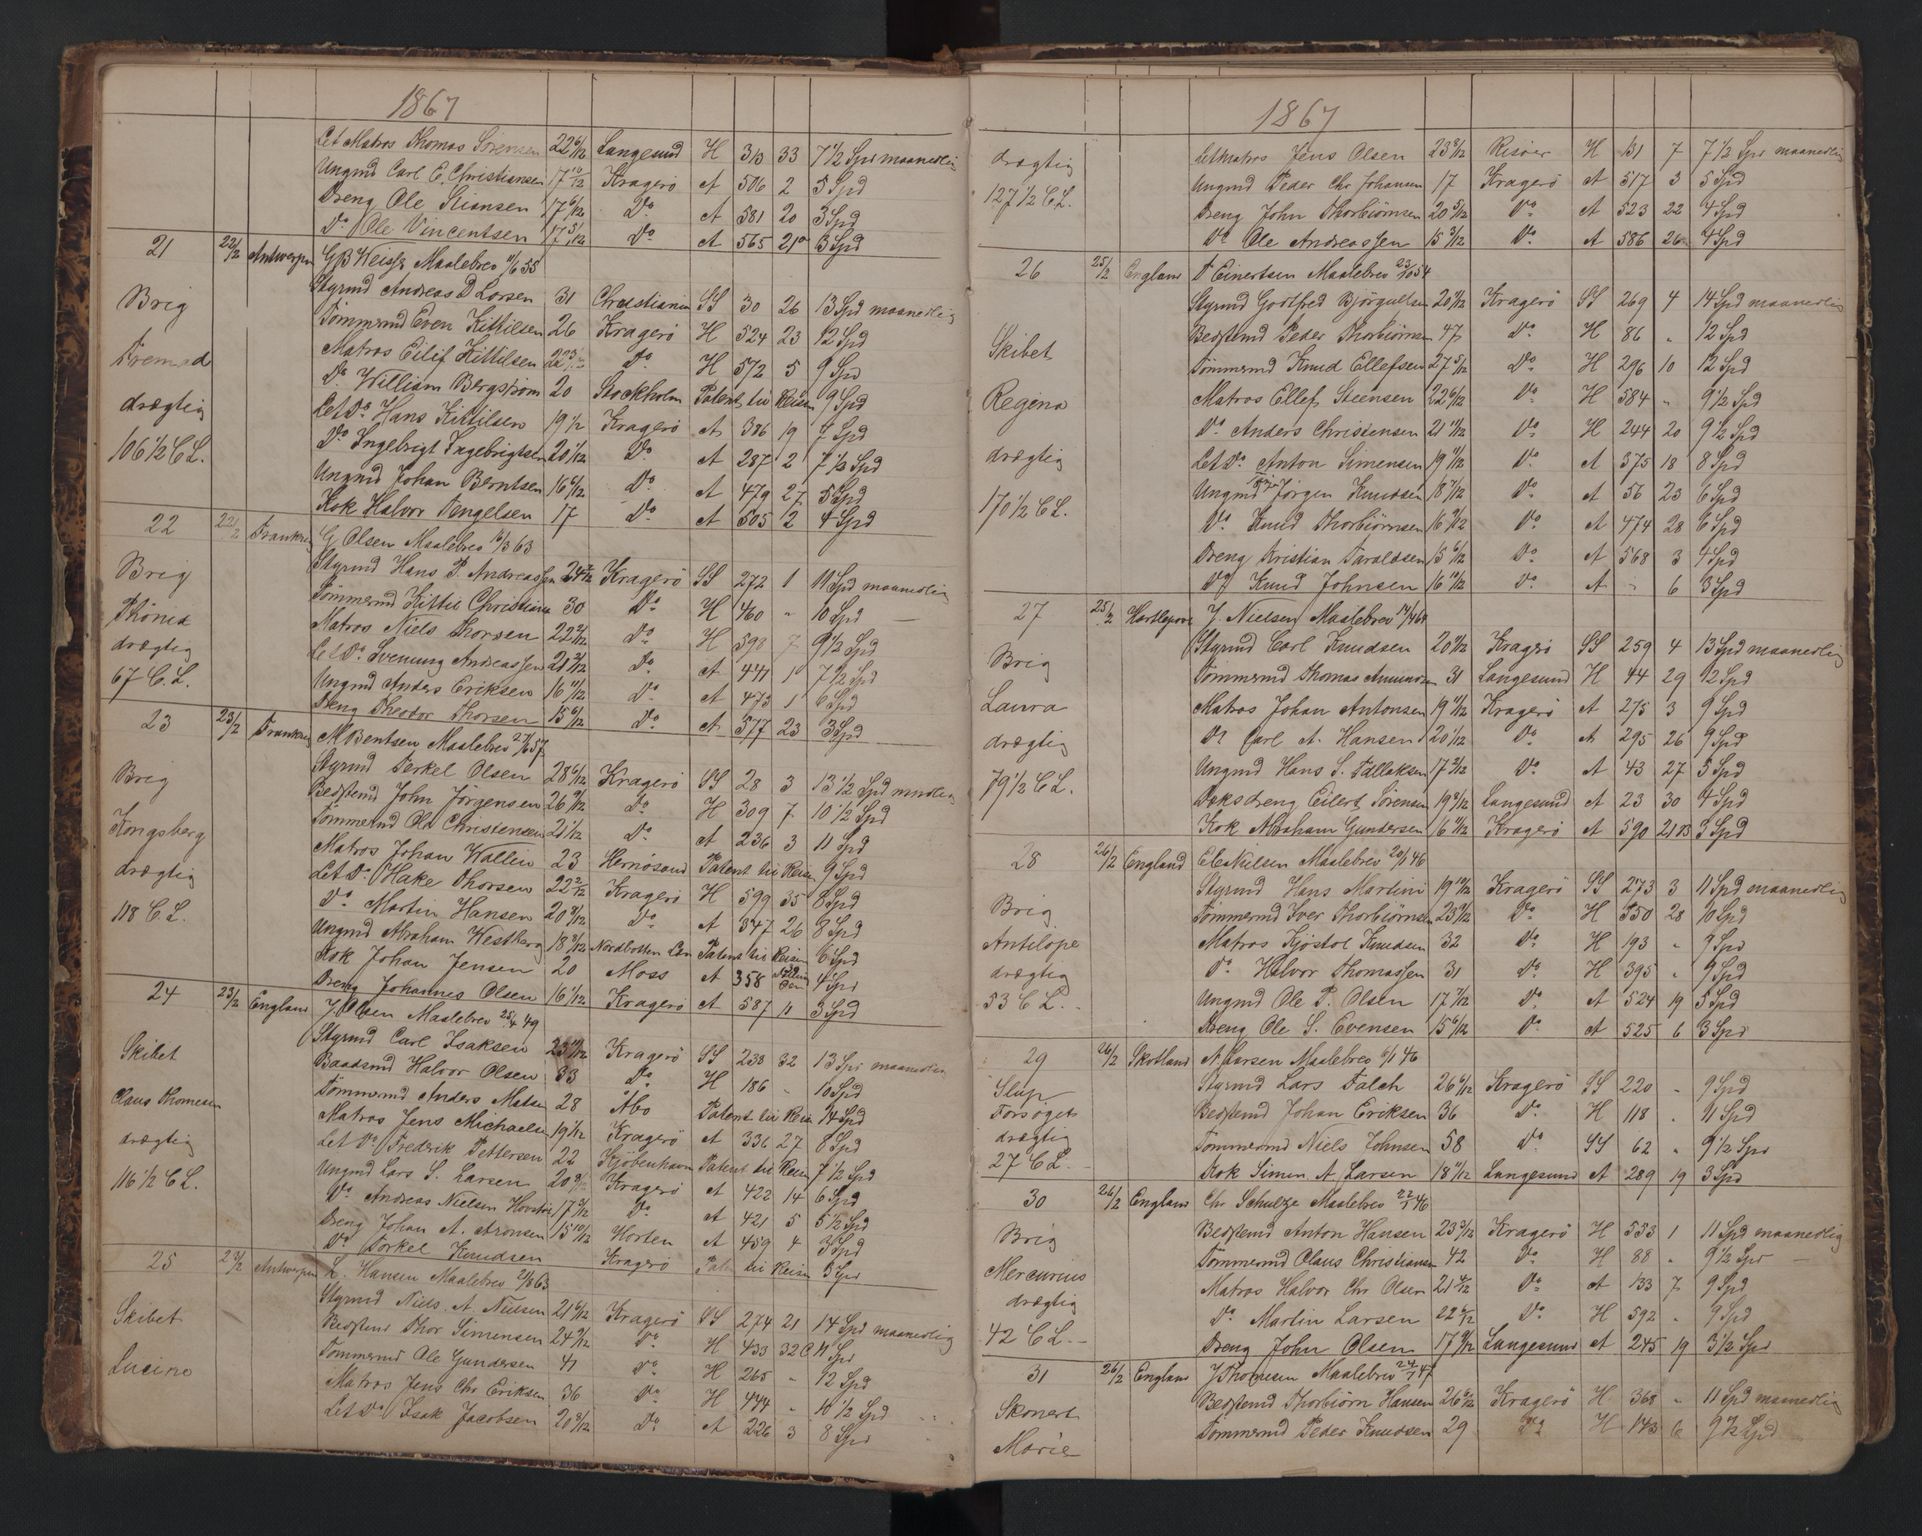 1867
Let Matros Thomas Sørensen 22 6/12 Langesund H 313 33 7 1/2 Spd maanedlig
Ungmd Carl E. Christiansen 17 10/12 Kragerö A 506 2 5 Spd
Dreng Ole Stiansen 17 6/12 Do A 581 20 3 Spd
Do Ole Vincentsen 17 5/12 Do A 565 21 3 Spd
21 22/2 Antwerpen Maalebrev 11/6 55
Styrmd Andreas D Larsen 31 Christiania SS 30 26 13 Spd maanedlig
Brig Tømmermd Even Kittilsen 26 Kragerö H 524 23 12 Spd
Matros Eilif Kittilsen 22 Do H 572 5 9 Spd
Do William Bergstrøm 20 Stockholm Patent til Reisen 9 Spd
drægtig Let Do Hans Kittilsen 19 1/2 Kragerö A 386 19 7 Spd
106 1/2 C.L. Do Ingebrigt Ingebrigtsen 20 1/12 Do A 287 2 7 1/2 Spd
Ungmd Johan Berntsen 16 6/12 Do A 479 27 5 Spd
Kok Halvor Tengelsen 17 Do A 505 2 4 Spd
22 22/2 Frankrig G Olsen Maalebrev 16/3 63
Brig Styrmd Hans P. Andreassen 24 Kragerö SS 272 1 11 Spd maanedlig
Phönix Tømmermd Kittil Christians 30 Do H 460 " 10 Spd
drægtig Matros Niels Thorsen 22 Do H 590 7 9 1/2 Spd
Let Do Svenung Andreassen 21 Do A 441 1 7 1/2 Spd
67 C.L. Ungmd Anders Eriksen 16 11/12 Do A 473 1 6 Spd
Dreng Theodor Thorsen 15 6/12 Do A 577 23 3 Spd
23 23/2 Frankrig M Bentsen Maalebrev 57
Brig Styrmd Terkel Olsen 28 6/12 Kragerö SS 28 3 13 1/2 Spd mndlig
Bedstemd John Jörgensen 26 Do H 309 7 10 1/2 Spd
Kongsberg Tømmermd Ole Christensen 21 1/12 Do A 236 3 11 Spd
drægtig Matros Johan Wallin 23 Hernösand Patent til Reisen 9 Spd
Let Do Hake Thorsen 22 2/12 Kragerö H 599 35 8 Spd
118 C.L. Do Martin Hansen 20 Do A 347 26 8 Spd
Ungmd Abraham Westberg 18 Nordbotten Län Patent til Reisen 6 Spd
Kok Johan Jensen 20 Moss A 358 4 Spd
Dreng Johannes Olsen 16 1/12 Kragerö A 587 11 3 Spd
24 23/2 England J Olsen Maalebrev 25/4 49
Skibet Styrmd Carl Isaksen 23 Kragerö SS 238 32 13 Spd maanedlig
Baadsmd Halvor Olsen 33 Do H 186 " 10 Spd
Claus Thomesen Tømmermd Anders Matsen 28 Åbo Patent til Reisen 14 Spd
drægtig Matros Jens Michaelsen 19 1/12 Kragerö A 336 27 8 Spd
Let Do Fredrik Pettersen 22 Kjöbenhavn Patent til Reisen 7 1/2 Spd
116 1/2 C.L. Ungmd Lars S. Larsen 20 Kragerö A 422 14 6 Spd
Do Andreas Nielsen 17 Do A 421 5 5 1/2 Spd
Dreng Johan A. Aronsen 15 10/12 Horten A 459 4 3 Spd
Do Torkel Knudsen Kragerö Patent til Reisen 3 Spd
25 Antwerpen L. Hansen Maalebrev 21/8 63
Skibet Styrmd Niels A. Nielsen 21 Kragerö SS 274 21 14 Spd maanedlig
Bedstemd Thor Simensen 24 Do H 433 32 11 Spd
Tømmermd Ole Gundersen 41 Do H 265 " 12 Spd
Lucino Matros Jens Chr Eriksen 36 Do H 444 " 10 1/2 Spd
Let Do Isak Jacobsen 20 Do A 226 3 8 Spd
1867
drægtig Let Matros Jens Olsen 23 Risöer H 131 7 7 1/2 Spd maanedlig
127 1/2 C.L. Ungmd Peder Chr Johansen 17 Kragerö A 517 3 5 Spd
Dreng John Thorbiörnsen 20 5/12 Do A 523 22 4 Spd
Do Ole Andreassen 15 3/12 Do A 586 26 4 Spd
26 25/2 England T Einertsen Maalebrev 54
Styrmd Gootfred Björgulfsen 20 Kragerö SS 269 4 14 Spd maanedlig
Skibet Bedstemd Peder Thorbiörnsen 47 Do H 86 " 12 Spd
Tømmermd Knud Ellefsen 27 5/12 Do H 296 10 12 Spd
Regena Matros Ellef Steensen 22 6/12 Do H 584 " 9 1/2 Spd
Do Anders Christensen 21 Do H 244 20 9 1/2 Spd
drægtig Let Do Anton Simensen 19 Do A 375 18 8 Spd
170 1/2 C.L. Ungmd Jörgen Knudsen 18 7/12 Do A 56 23 6 Spd
Do Knud Thorbiörnsen 16 Do A 474 28 6 Spd
Dreng Kristian Taraldsen 15 6/12 Do A 568 3 4 Spd
Do Knud Johnsen 16 10/12 Do A " 6 3 Spd
27 25/2 Hartlepool J. Nielsen Maalebrev 14/4 64
Brig Styrmd Carl Knudsen 20 Kragerö SS 259 4 13 Spd maanedlig
Tømmermd Thomas Amundsen 31 Langesund H 44 29 12 Spd
Laura Matros Johan Antonsen 19 Kragerö A 275 3 9 Spd
drægtig Do Carl A. Hansen 20 1/12 Do A 295 26 9 Spd
79 1/2 C.L. Ungmd Hans S. Tallaksen 17 Do A 43 27 5 Spd
Doksdreng Eilert Sörensen 19 Langesund A 23 30 4 Spd
Kok Abraham Gundersen 16 Kragerö A 590 21 3 Spd
28 26/2 England Maalebrev 20/1 46
Brig Styrmd Hans Martini 19 10/12 Kragerö SS 273 3 11 Spd maanedlig
Tømmermd Iver Thorbiörnsen 23 Do H 550 28 10 Spd
Antilope Matros Kjöstol Knudsen 32 Do H 193 " 9 Spd
drægtig Do Halvor Thomassen 31 Do H 395 " 9 Spd
53 C.L. Ungmd Ole P. Olsen 17 7/12 Do A 524 19 5 Spd
Dreng Ole S. Evensen 15 6/12 Do A 525 6 3 Spd
29 26/2 Skotland A Larsen Maalebrev 6/1 46
Slup Styrmd Lars Falch 26 Kragerö SS 220 " 9 Spd
Forsøget Bedstemd Johan Eriksen 36 Do H 118 " 11 Spd
drægtig Tømmermd Niels Johnsen 58 Do SS 62 " 9 1/2 Spd
27 C.L. Kok Simen A. Larsen 18 Langesund A 289 19 3 Spd
30 26/2 England Chr Schultze Maalebrev 22/1 46
Brig Bedstemd Anton Hansen 23 Kragerö H 553 1 11 Spd maanedlig
Tømmermd Claus Christiansen 42 Do H 88 " 9 1/2 Spd
Mercurius Matros Halvor Chr Olsen 21 Do A 133 7 9 Spd
drægtig Do Martin Larsen 22 Do H 592 " 9 Spd
42 C.L. Dreng John Olsen 17 Langesund A 245 19 3 1/2 Spd
31 26/2 England J Thomsen Maalebrev 24/7 47
Skonert Bedstemd Thorbiörn Hansen 26 Kragerö H 368 " 11 Spd maanedlig
Marie Tømmermd Peder Knudsen 29 Do H 143 6 9 1/2 Spd